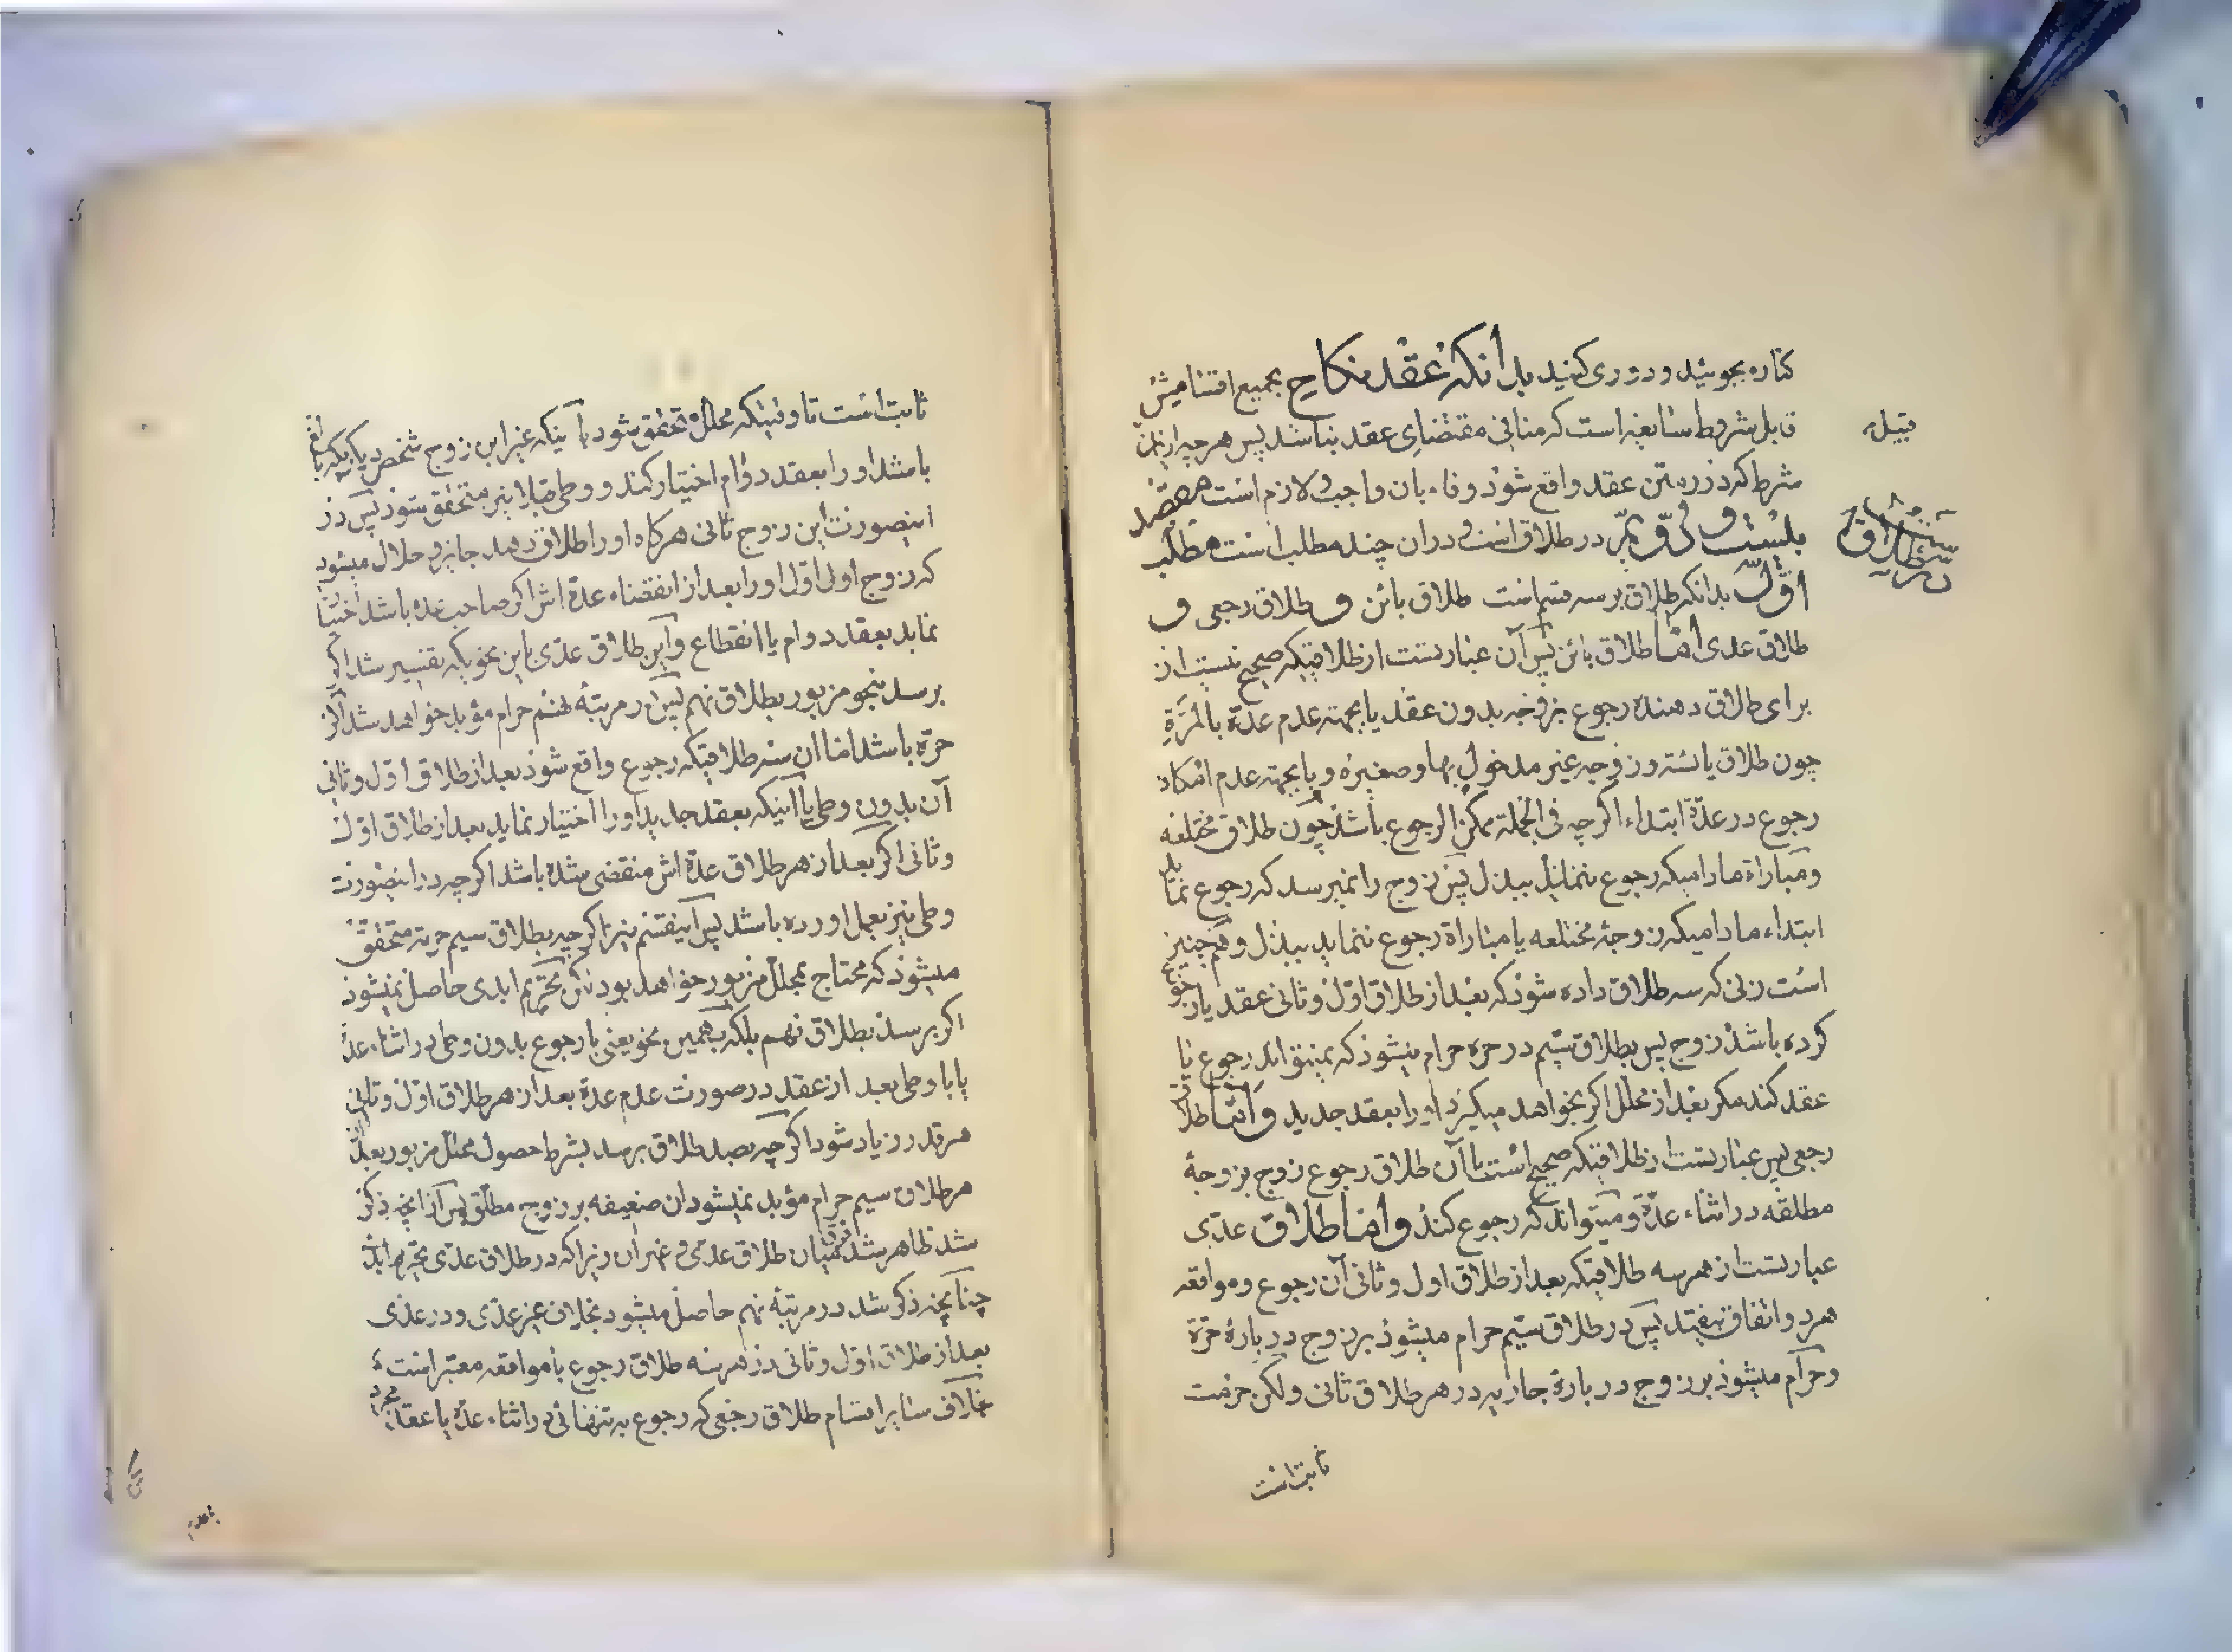 کناره بجوئید و دوری کنید بدانکه عقد نکاح بجمیع اقسامش
قابل شروط سایغه است که منافی مقتضای عقد نباشد پس هر چه از این قبیل
شرط که در متن عقد واقع شود وفاء بان واجب و لازم است مقصد
بیست و در طلاق است و در ان چند مطلب است مطلب
اوّل بدانکه طلاق بر سه قسم است طلاق بائن و طلاق رجعی و
طلاق عدی امّا طلاق بائن پس آن عبارتست از طلاقیکه صحیح نیست از
برای طلاق دهنده رجوع بزوجه بدون عقد یا بجهة عدم عدّة بالمرّة
چون طلاق یائسه و زوجه غیر مدخول بها و صغیره و یا بجهة عدم امکان
رجوع در عدّة ابتداء اگر چه فی الجملة ممکن الرجوع باشد چون طلاق مختلعه
و مباراة مادامیکه رجوع ننمایند ببذل پس زوج را نمیرسد که رجوع نماید
ابتداء مادامیکه زوجهٔ مختلعه یا مباراة رجوع ننماید ببذل و همچنین
است زنی که سه طلاق داده شود که بعد از طلاق اوّل و ثانی عقد یا رجوع
کرده باشد زوج پس بطلاق سیّم در حره حرام میشود که نمیتواند رجوع یا
عقد کند مگر بعد از محلل اگر بخواهد میگیرد او را بعقد جدید و امّا طلاق
رجعی پس عبارتست از طلاقیکه صحیح است با آن طلاق رجوع زوج بزوجهٔ
مطلقه در اثناء عدّة و میتواند که رجوع کند و امّا طلاق عدّی
عبارتست از هر سه طلاقیکه بعد از طلاق اول و ثانی آن رجوع و مواقعه
هر دو اتفاق بیفتد پس در طلاق سیّم حرام میشود بر زوج در بارهٔ حرّة
و حرام میشود بر زوج در بارهٔ جاریه در هر طلاق ثانی و لکن حرمت
ثابت است
ثابت است تا وقتیکه محلل متحقق شود با اینکه غیر این زوج شخص دیگریکه بالغ
باشد او را بعقد دوام اختیار کند و وطی قبلا نیز متحقق شود پس در
اینصورت این زوج ثانی هرگاه او را طلاق دهد جایز و حلال میشود
که زوج اولی اوّل او را بعد از انقضاء عدّة اش اگر صاحب عده باشد اختیار
نماید بعقد دوام یا انقطاع و این طلاق عدّی باین نحویکه تفسیر شد اگر
برسد بنحو مزبور بطلاق نهم پس در مرتبهٔ نهم حرام مؤبد خواهد شد اگر
حرّة باشد امّا ان سه طلاقیکه رجوع واقع شود بعد از طلاق اوّل و ثانی
آن بدون وطی یا اینکه بعقد جدید او را اختیار نماید بعد از طلاق اوّل
و ثانی اگر بعد از هر طلاق عدّة اش منقضی شده باشد اگر چه در اینصورت
وطی نیز بعمل اورده باشد پس اینقسم نیز اگر چه بطلاق سیم حرمة متحقق
میشود که محتاج بمحلل مزبور خواهد بود لکن تحریم ابدی حاصل نمیشود
اگر برسد بطلاق نهم بلکه بهمین نحو یعنی با رجوع بدون وطی در اثناء عدّة
یا با وطی بعد از عقد در صورت عدم عدة بعد از هر طلاق اوّل و ثانی
هر قدر زیاد شود اگر چه بصد طلاق برسد بشرط حصول محلل مزبور بعد از
هر طلاق سیم حرام مؤبد نمیشود ان ضعیفه بر زوج مطلّق پس از انچه ذکر
شد ظاهر شد فرق میان طلاق عدّی و غیر ان زیرا که در طلاق عدّی تحریم ابدی
چنانچه ذکر شد در مرتبهٔ نهم حاصل میشود بخلاف غیر عدّی و در عدّی
بعد از طلاق اوّل و ثانی در هر سه طلاق رجوع با مواقعه معتبر است
بخلاف سایر اقسام طلاق رجعی که رجوع به تنهائی در اثناء عدّه یا عقد مجرد